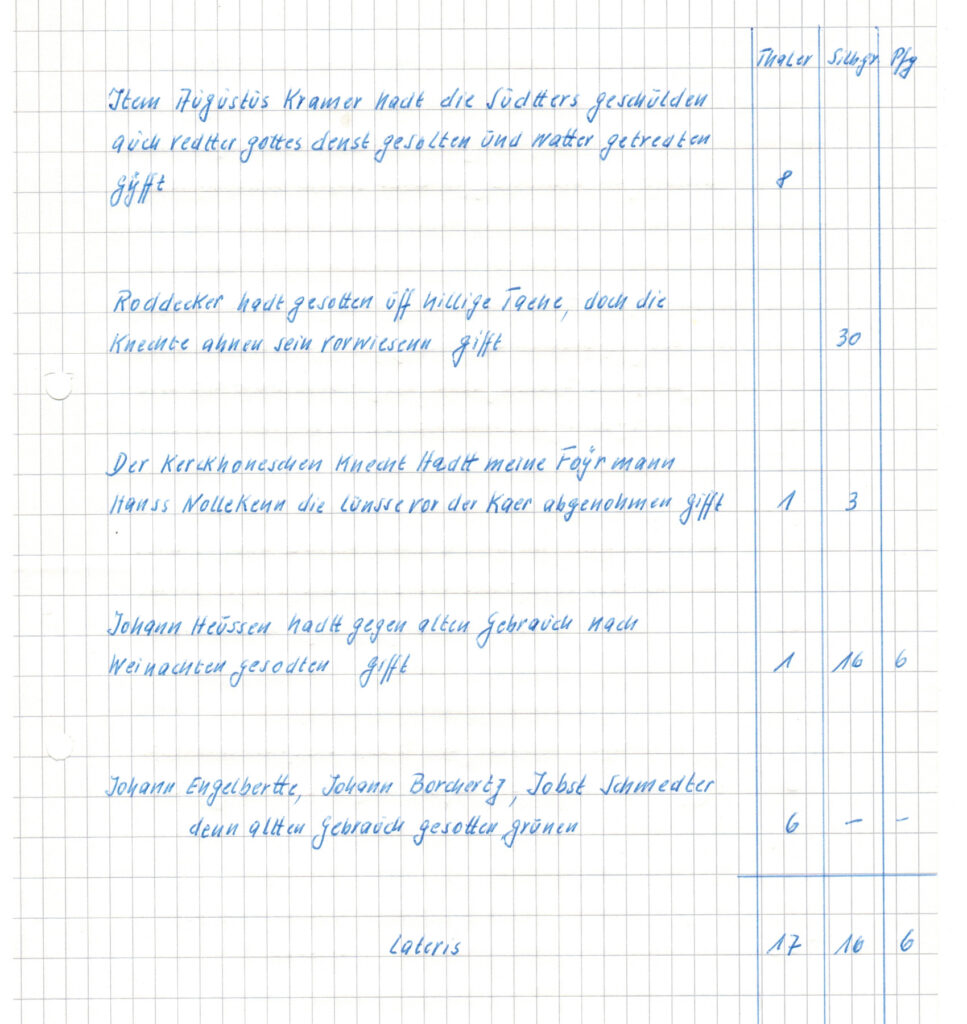 Thaler Silbgr Pfg
Item Augustus Kramer hadt die Südtters geschulden
auch redtter gottes denst gesolten und watter getredten
gÿfft 8
Roddecker hadt gesotten uff hillige Taene, doch die
Knechte ahnen sein vorwiesenn gifft 30
Der Kerckhoneschen Knecht Hadtt meine Foÿrmann
Hanss Nollekenn die lünsse vor der Kaer abgenohmen gifft 1 3
Johann Heüssen hadtt gegen alten Gebrauch nach
Weinachten gesodten gifft 1 16 6
Johann Engelbertte, Johann Borchertz, Jobst Schmedter
denn altten Gebrauch gesotten grünen 6 – –
Lateris 17 16 6